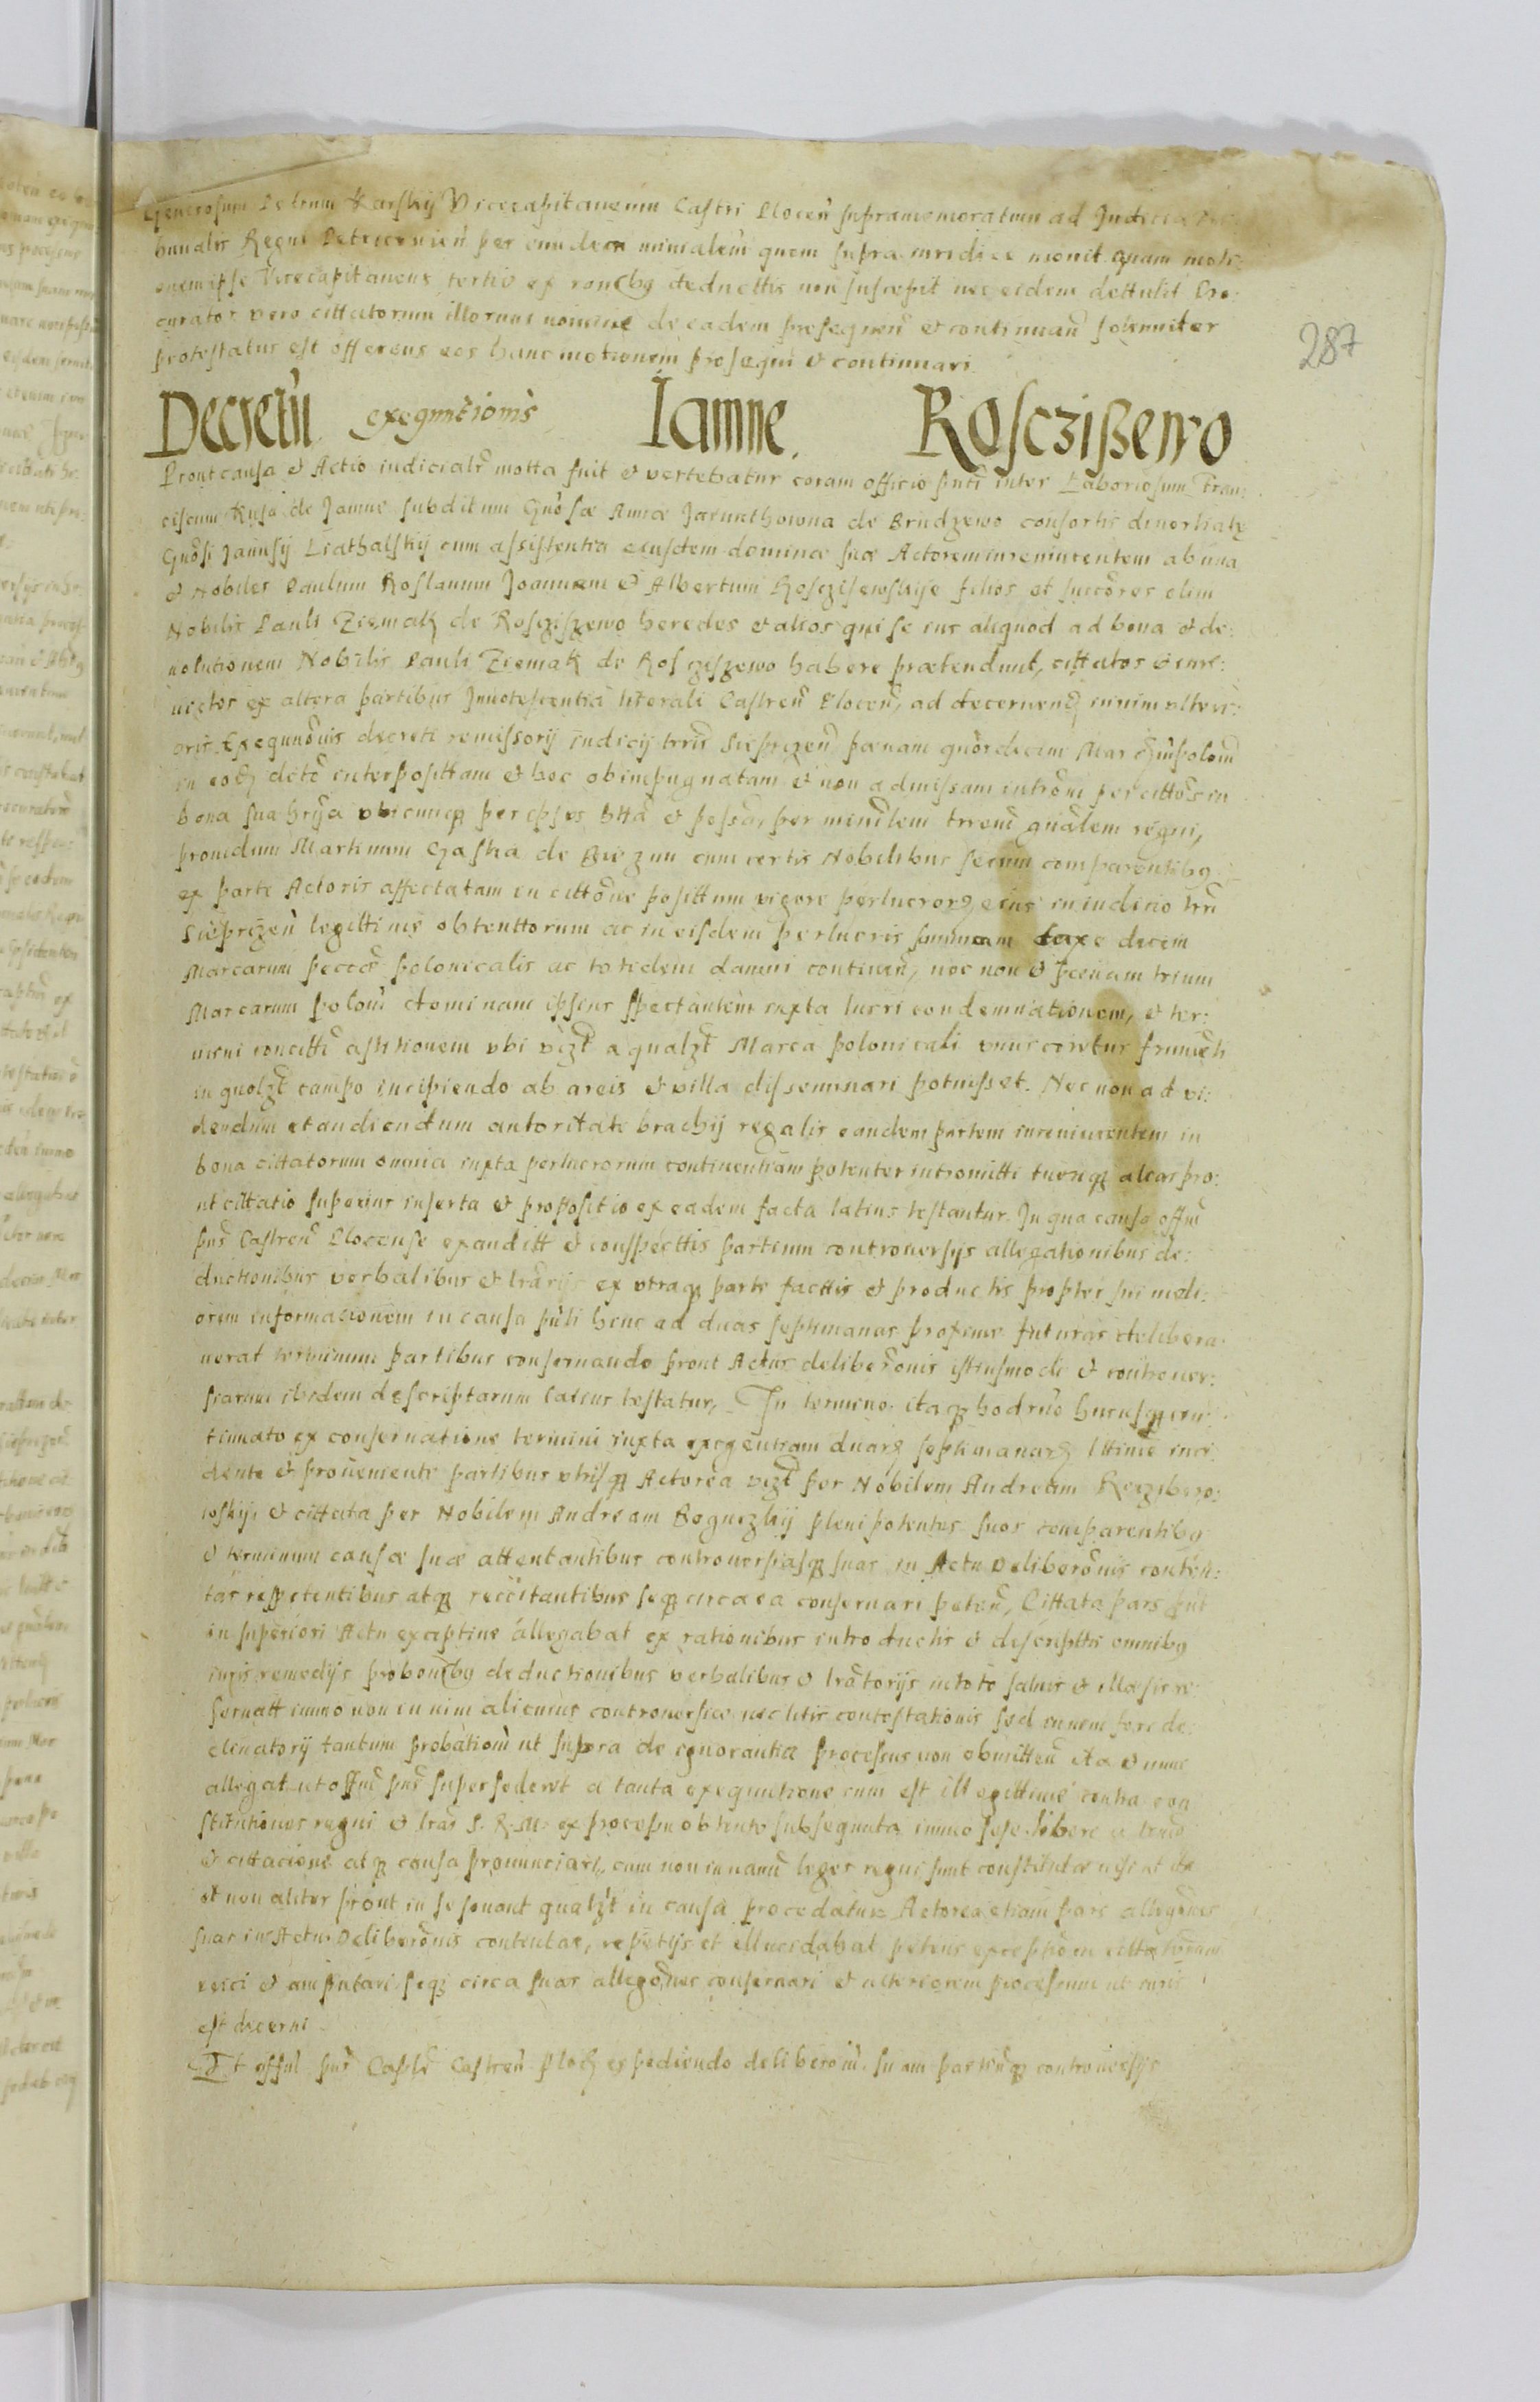 Generosum Petrum Karskij Vicecapitaneum Castri Plocen̄ supramemoratum ad Judicia
bunalis Regni Petricovien̄ per eundem minialem̄ quem supra iuridice monit quam moti:
onem ipse Vicecapitaneus tertio ex rōn̄bus deducttis non suscepit nec eidem dettulit Pro:
curator vero cittatorum illorum nomine de eadem prosequen̄ et continuan̄ solenniter
protestatus est offerens eos hanc motionem prosequi et continuari
287
Decretū exequutionis Iamne. Rosczißewo
Prout causa et Actio iudicialr̄ motta fuit et vertebatur coram officio pn̄ti inter Laboriosum Fran:
ciscum Kusa de Jamne subditum Gn̄osæ Annæ Jarunthowna de Brudzewo consortis
Gn̄osi Janusij Liathalskij cum assistentia eiusdem dominæ suæ Actorem iureniucentem ab una
et Nobiles Paulum Roslanum Joannem et Albertum Rosczisewskije filios et succōres olim
Nobilis Pauli Ziemak de Roscziszewo heredes et alios qui se ius aliquod ad bona et de:
volutionem Nobilis Pauli Ziemak de Roscziszewo habere prætendunt, cittatos iure:
victos ex altera partibus Innotescentia literali Castren̄ Plocen̄, ad decernen̄ in vim ulteri:
oris. decreti remissorij Judicij trris Sieprczen̄ pænam quordecim Mar
in interposittam et hoc ob impugnatam et non admissam intrōm per cittōs in
bona sua hrīa ubicunq per ipsos et posssa, per min̄lem trren̄ gnālem regni,
providum Martinum Gaska de Biezun cum certis Nobilibus secum comparentibus
ex parte Actoris affectatam in cittōne posittum vigore perlucrorum eius in iudicio trri
Sieprczen̄ legittime obtenttorum ac in eisdem perlucris summam taxe decem
Marcarum peccæ polonicalis ac totidem damni continen̄, nec non et pænam trium
Marcarum polon̄ dominam ipsius spectantem iuxta lucri condemnationem, et ter:
mini concitti astitionem ubi vīzt a qualzt Marca polonicali unus coretus frumēti
in quolzt campo incipiendo ab areis et villa disseminari potuisset. Nec non ad vi:
dendum et audiendum autoritate brachij regalis eandem partem iureniucentem in
bona cittatorum omnia iuxta perlucrorum continentiam potenter intromitti tuerique alias pro:
ut cittatio superius inserta et propositio ex eadem facta latius testantur. In qua causa offm̄
pn̄s Castren̄ Plocense exauditt et conspecttis partium controversijs allegationibus de:
ductionibus verbalibus et ex utraq parte facttis et productis propter sui meli:
orem informacionem in causa pn̄ti hinc ad duas septimanas proxime futuras delibera:
verat terminum partibus conservando prout Actus deliberōnis istiusmodi et controver:
siarum ibidem descriptarum latius testatur, In termino itaq hodrno hucusq con:
tinuato ex conservatione termini iuxta exigentiam duarum septimanarum lttime inci
dente et proveniente partibus utrisq Actorea vīzt per Nobilem Andream
et cittata per Nobilem Andream Boguczkij plenipotentes suos comparentibus
et terminum causæ suæ attentantibus controversiasq suas in Actu Deliberōnis conten:
tas reppetentibus atq reccitantibus seq circa ea conservari peten̄, Cittata pars put
in superiori Actu exceptive allegabat ex rationibus introductis et descripttis omnibus
iuris remedijs deductionibus verbalibus et lrātorijs in toto salvis et illæsis re
servatt immo non in vim alicuius controversiæ nec litis contestationis sed in vim fori de:
clinatorij tantum probation̄ ut supra de ignorantia processus non obmitten̄ ita et nunc
allegat ut offm̄ pn̄s supersederet a tanta exequutione cum est illegittime contra con
stitutiones regni et lrās S. R. M. ex processu obtento subsequuta immo sese libere a trmno
et cittacione atq causa pronunciari, cum non in vanū leges regni sunt constitutæ nisi ut ita
et non aliter prout in se sonant qualzt in causa procedatur Actorea etiam pars allegōnes
suas in Actu Deliberōnis contentas, repetijs et ellucidabat petens exceptiōn̄ cittatorum
reici et amputari seq circa suas allegōnes conservari et ulteriorem processum ut iuris
est decerni
Et offm̄ pn̄s Castren̄ expediendo deliberōn̄ suam partiumq controversijs